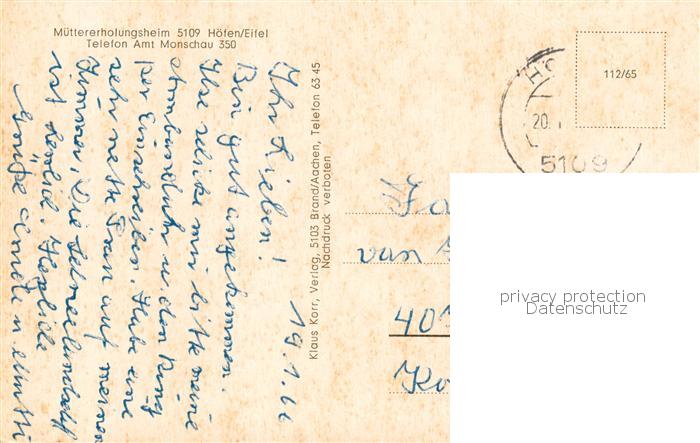 Müttererholungsheim 5109 Höfen/Eifel
Telefon Amt Monschau 350
19.1.66
Ihr Lieben!
Bin gut angekommen.
Ilse schicke mir bitte meine
Armbanduhr u. den Ring
per Einschreiben. Habe eine
sehr nette Frau auf meinem
Zimmer. Die
ist herrlich. Herzliche
Grüße u. Mutti
Klaus Korr, Verlag, 5103 Brand/Aachen, Telefon 63 45
Nachdruck verboten
112/65
20.
5109
Fa
van
40
privacy protection
Datenschutz